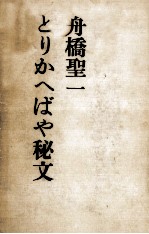 舟橋聖一
とりかへばや秘文